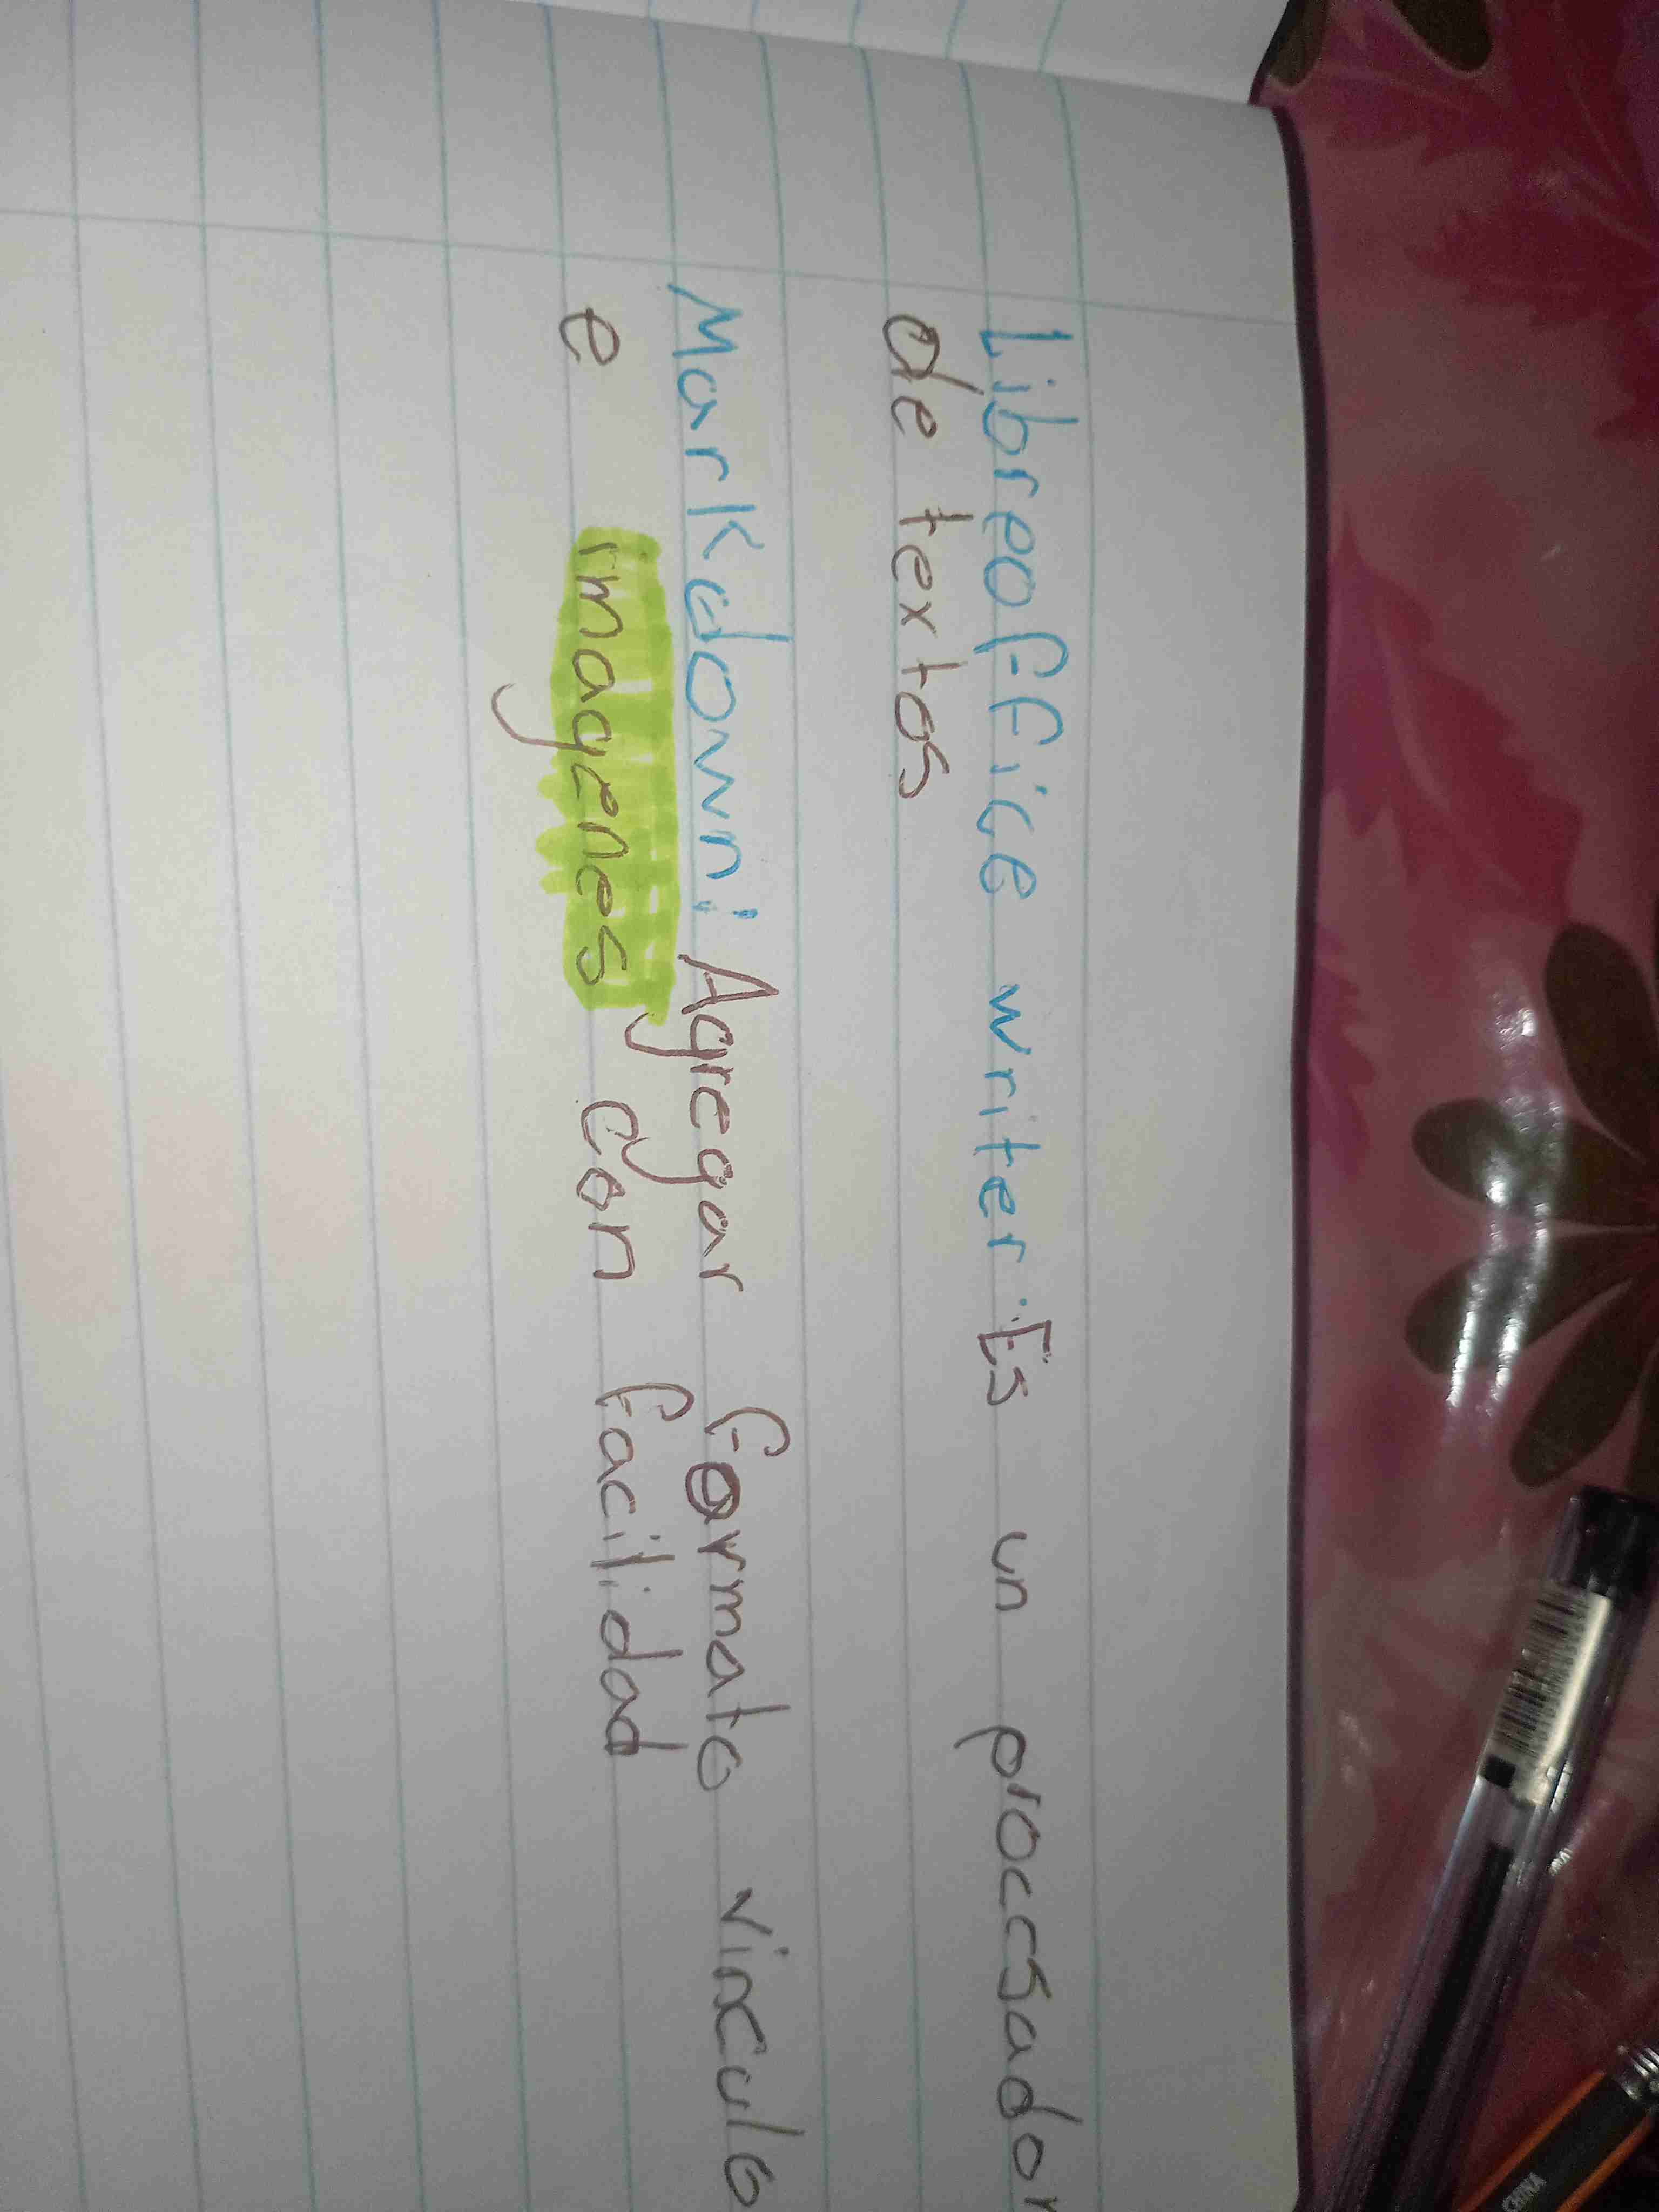 Libreoffice writer: Es un procesador
de textos
Markdown: Agregar formato vinculo
e imagenes con facilidad
CHINA